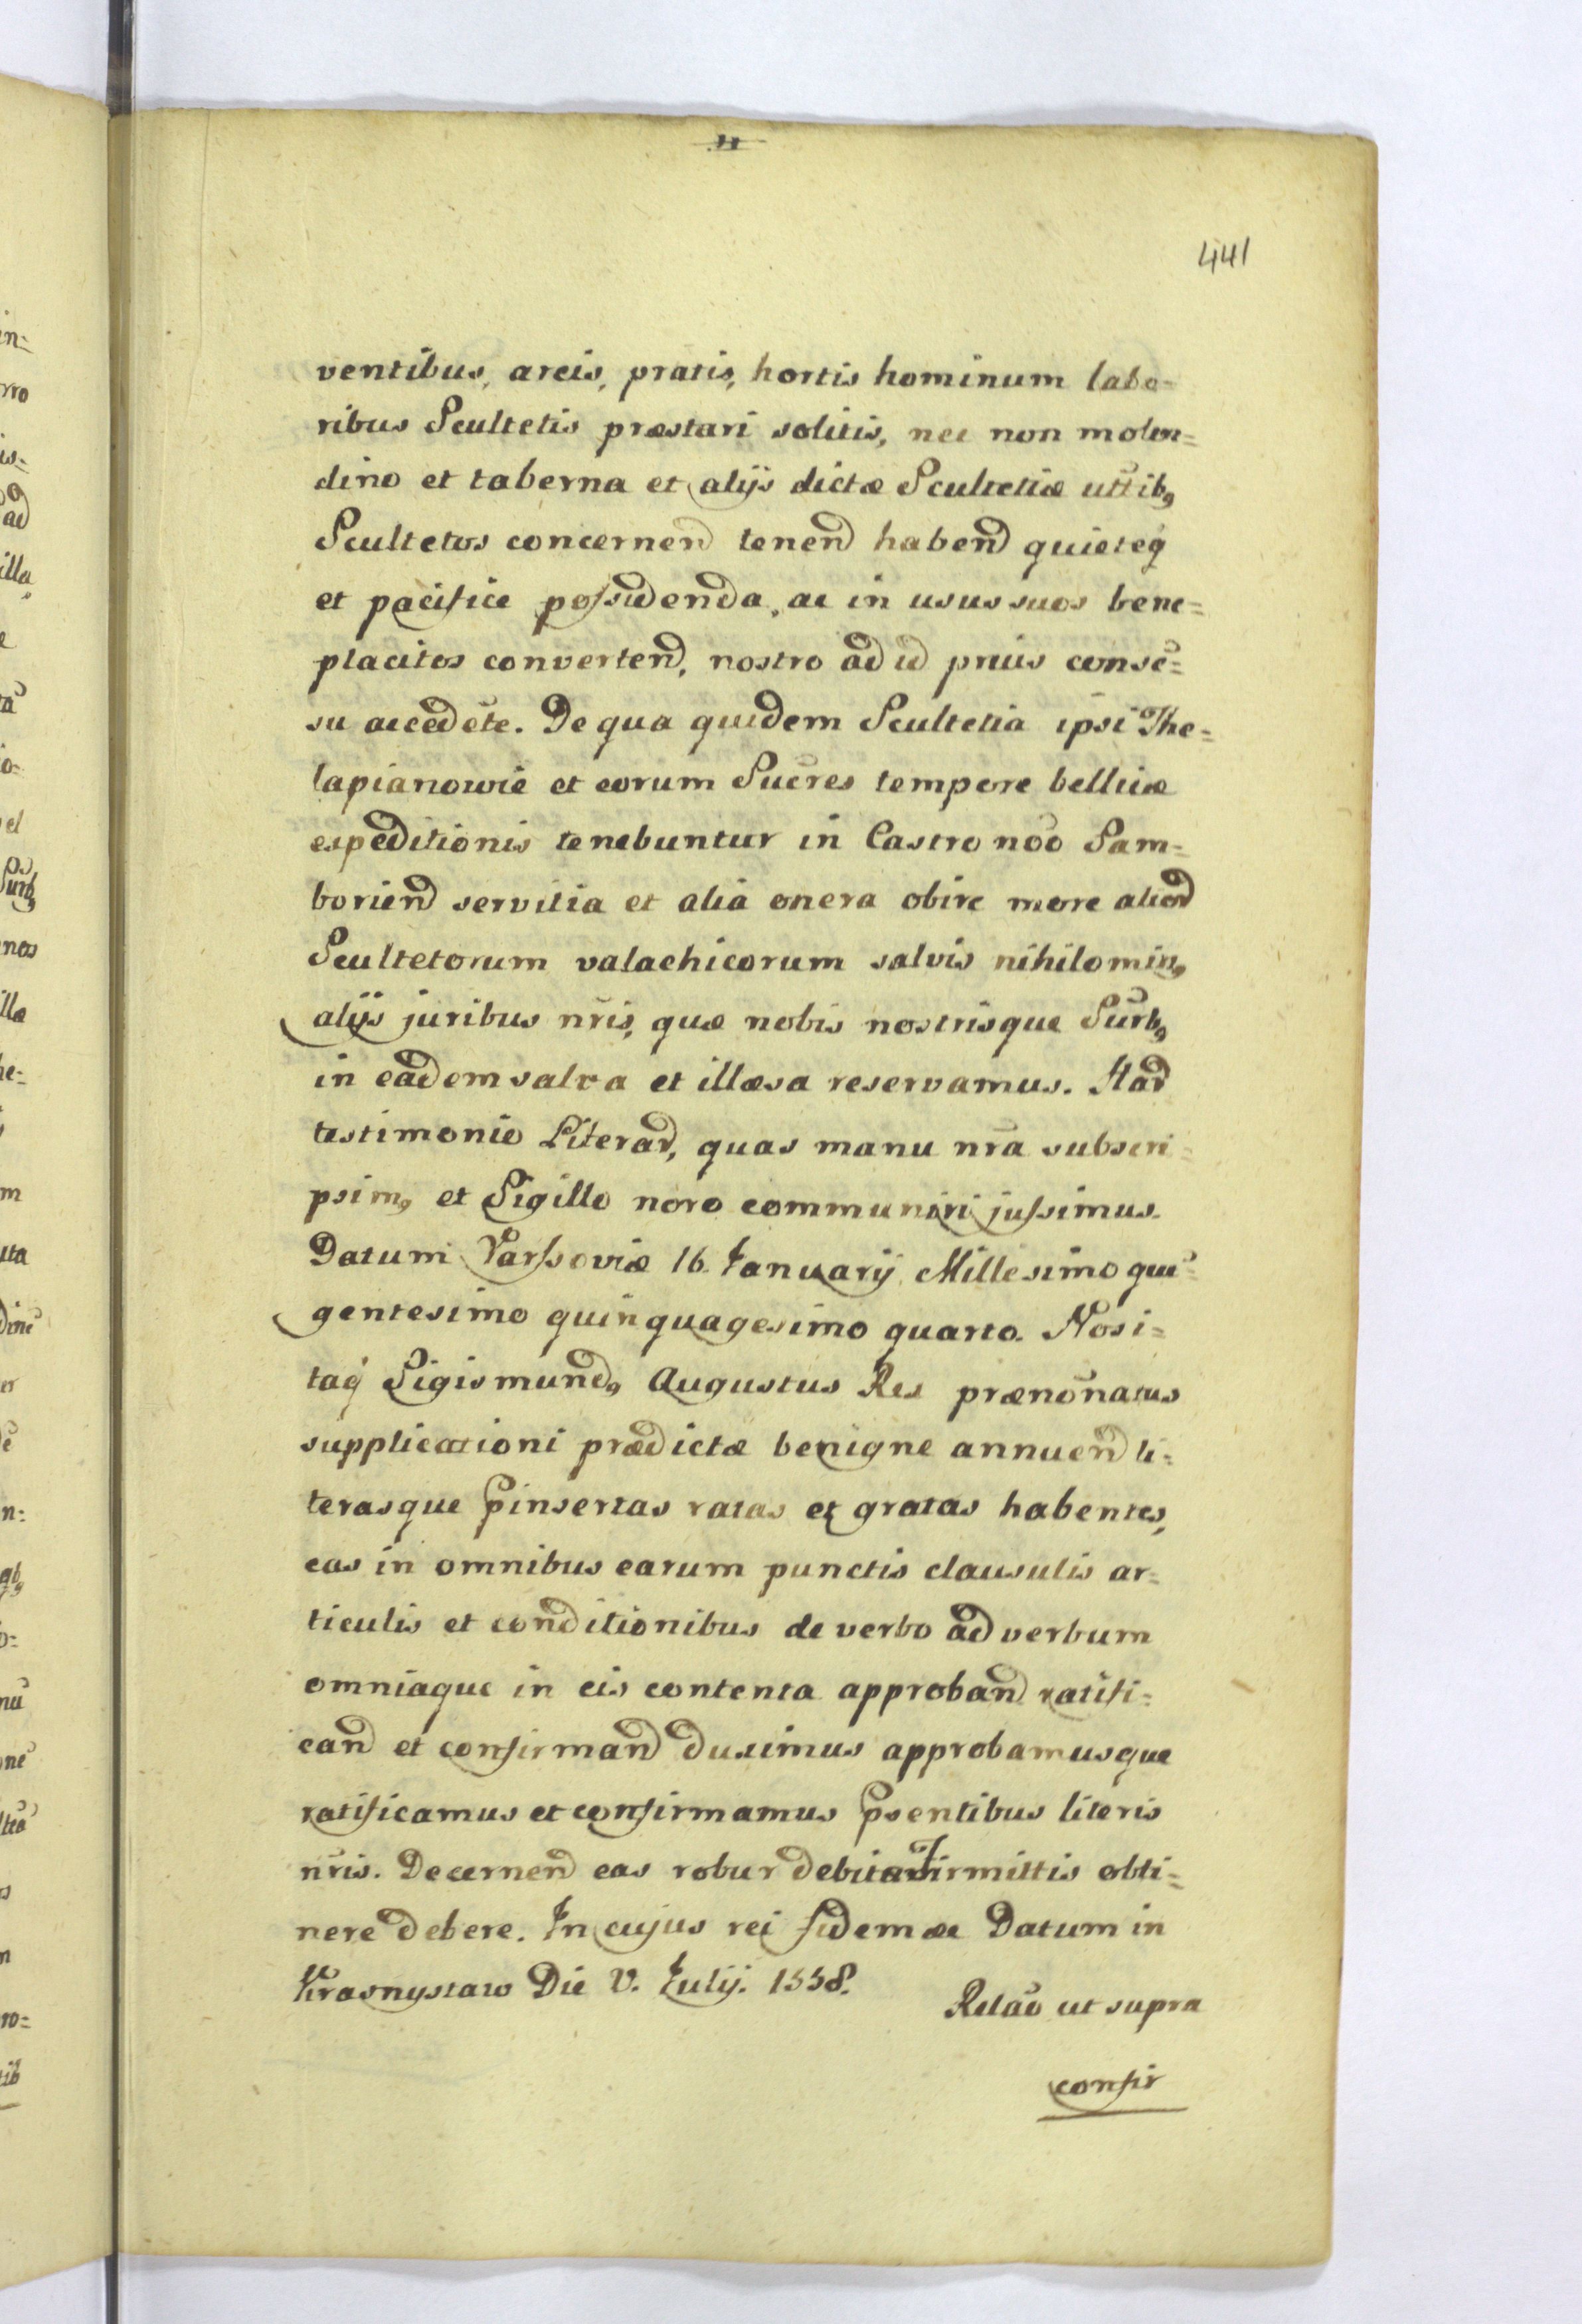 441
ventibus, areis, pratis, hortis hominum labo=
ribus Scultetis præstari solitis, nec non molen=
dino et taberna et alijs dictæ Scultetiæ uttib9
Scultetos concernen̄d tenen̄d haben̄d quieteq́
et pacifice possidenda, ac in usus suos bene=
placitos converten̄d, nostro ad id prius consē=
su accedēte. De qua quidem Scultetia ipsi The=
lapianowie et eorum Sucres tempore bellicæ
expeditionis tenebuntur in Castro nōo Sam=
borien̄d servitia et alia onera obire more aliōd
Scultetorum valachicorum salvis nihilomin9
alijs juribus nr̄is, quæ nobis nostrisque Surb9
in eadem salva et illæsa reservamus. Har̄d
testimonio Literar̄d, quas manu nr̄a subscri=
psim9 et Sigillo noro communiri jussimus.
Datum Varssoviæ 16. Januarij Millesimo quī=
gentesimo quinquagesimo quarto. Nos i=
taq́ Sigismund9 Augustus Rex prænōnatus
supplicationi prædictæ benigne annuen̄d li=
terasque pinsertas ratas et gratas habentes,
eas in omnibus earum punctis clausulis ar=
ticulis et conditionibus de verbo ad verbum
omniaque in eis contenta approban̄d ratifi=
can̄d et confirman̄d duximus approbamusque
ratificamus et confirmamus psentibus literis
nr̄is. Decernen̄d eas robur debitæ firmittis obti=
nere debere. In cujus rei fidem æ Datum in
Krasnystaw Die V. Julij. 1558.
Relaō ut supra
confir